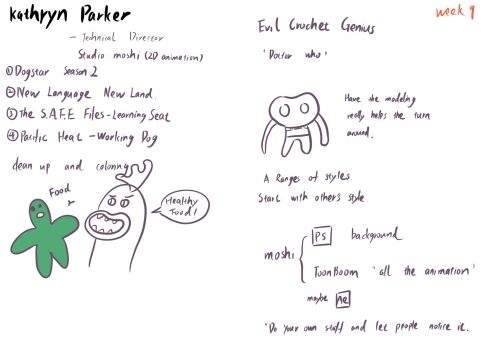 Kathryn Parker
- Technical Director
Studio moshi (2D animation)
① Dogstar Season 2
② New Language New Land.
③ The S.A.F.E Files - Learning Seat
④ Pacific Heat - Working Dog
clean up and coloring
Food
Healthy
Food!
week 9
Evil Crochet Genius
'Doctor who'
Have the modeling
really helps the turn
around.
A Ranges of styles.
Start with others style
moshi
PS background
ToonBoom "all the animation"
maybe Ae
"Do your own stuff and let people notice it.